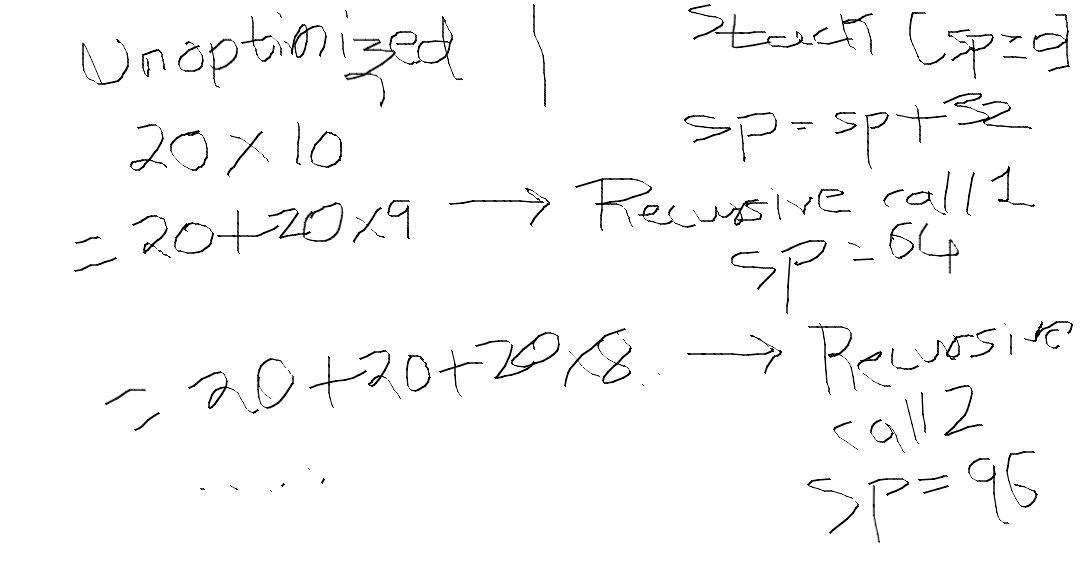 Unoptimized | Stack [sp=0]
20 × 10
sp = sp + 32
= 20 + 20 × 9 → Recursive call 1
sp = 64
= 20 + 20 + 20 × 8 → Recursive
call 2
..... sp = 96